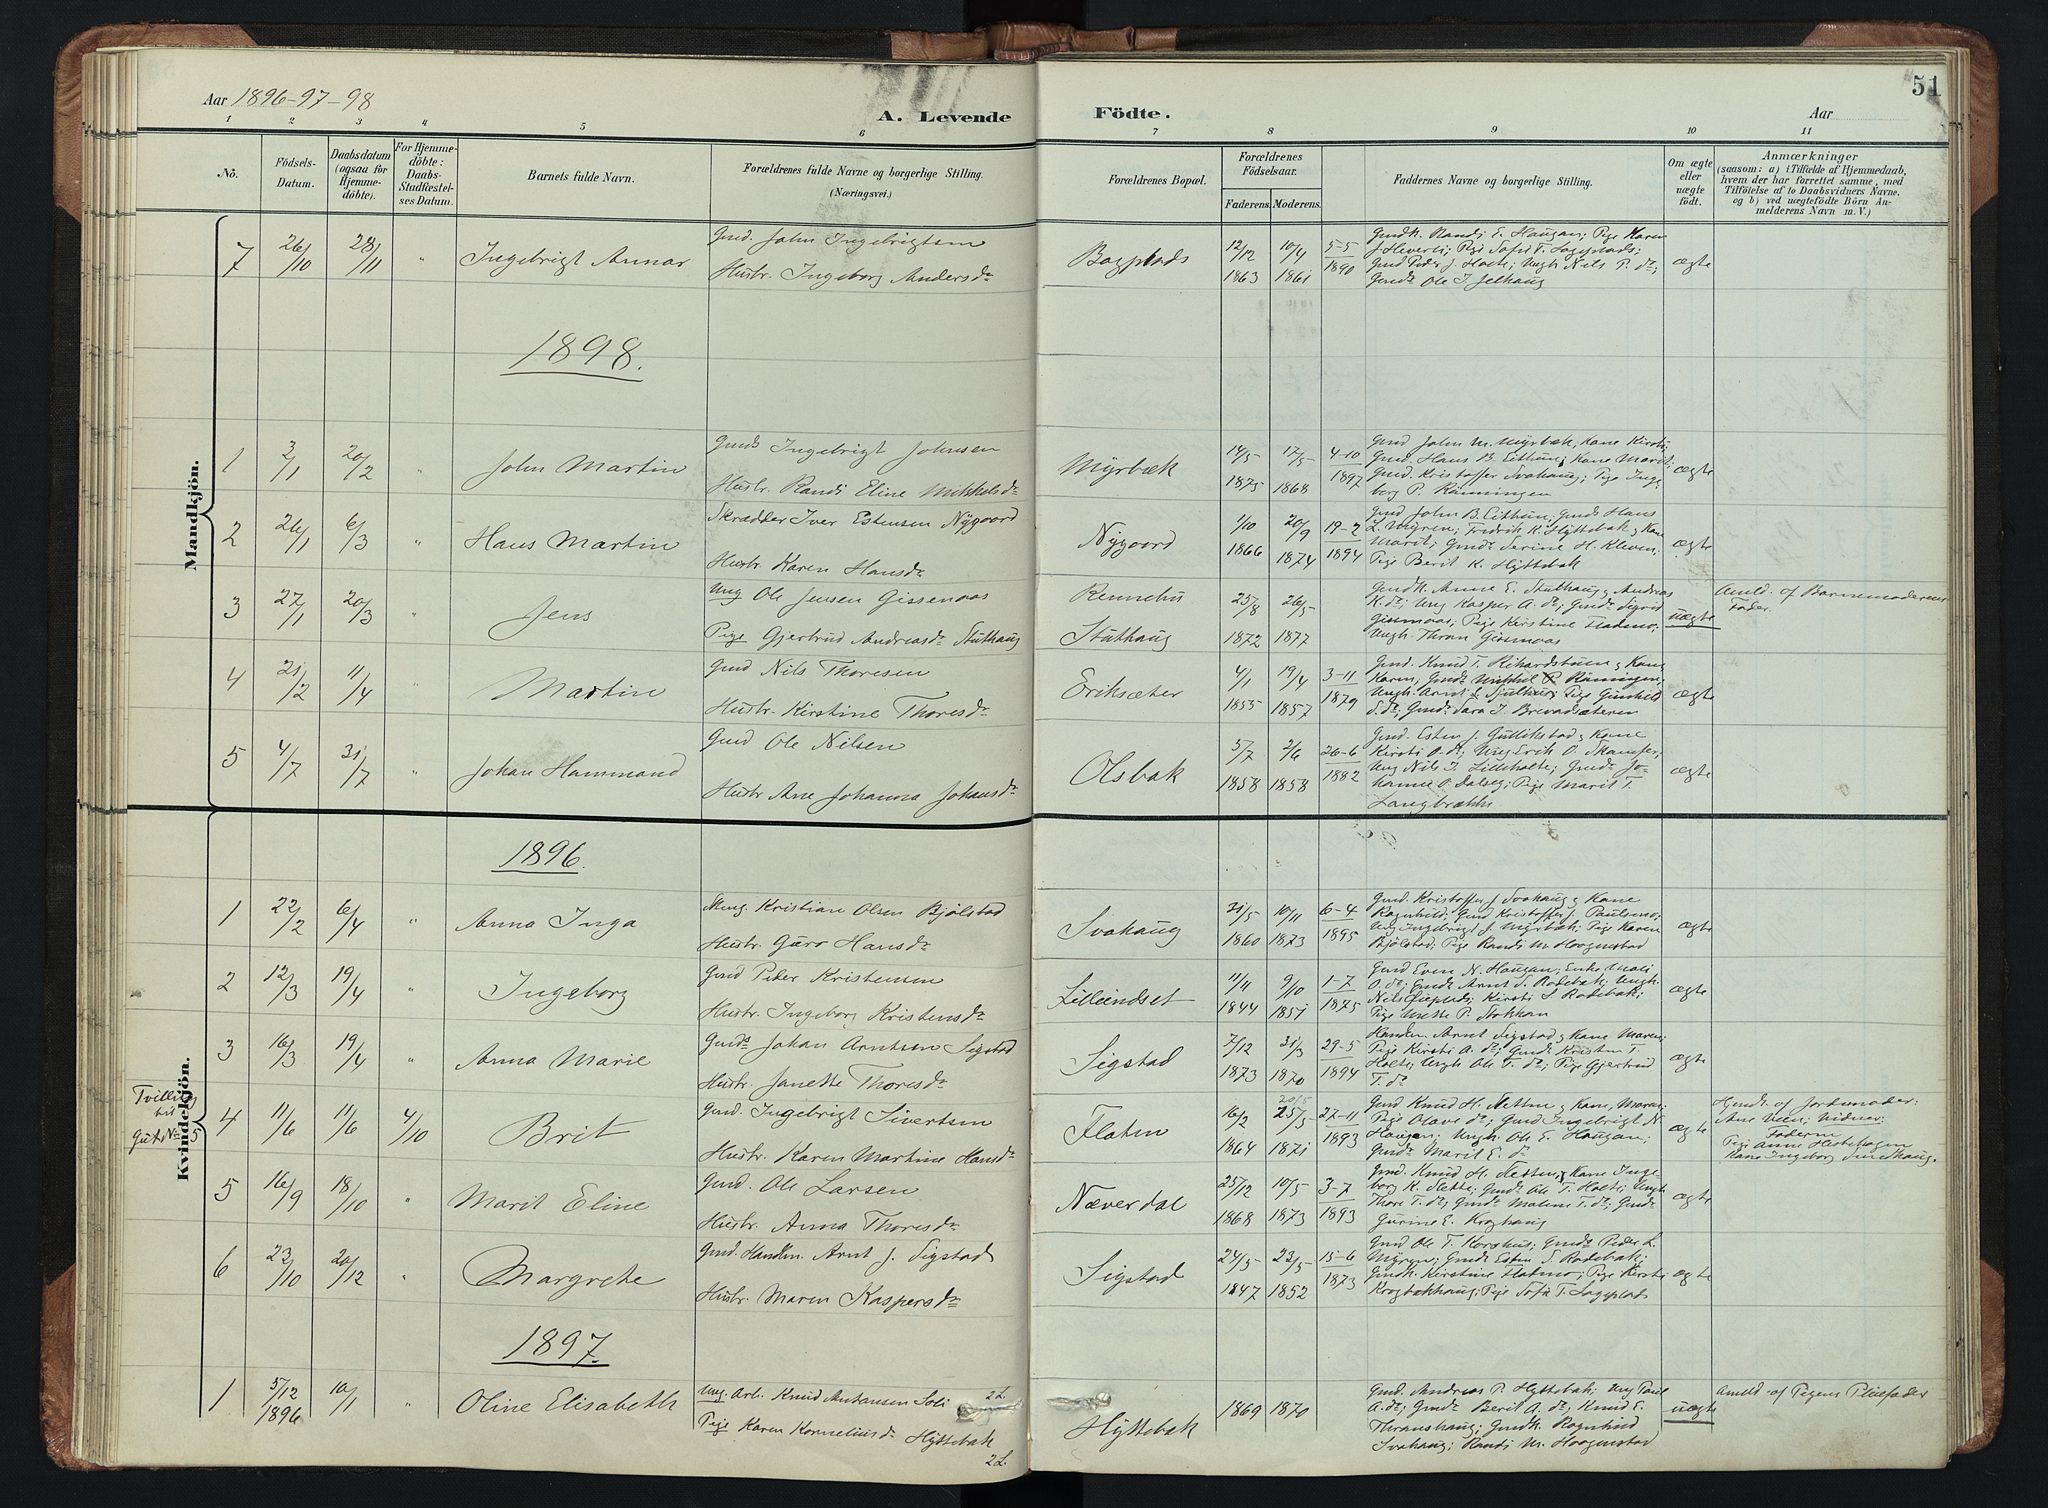 Aar 1896-97-98
A. Levende
Födte.
Aar
51
1 2 3 4 5 6 7 8 9 10 11
No.
Födsels-Datum.
Daabsdatum (ogsaa for Hjemmedöbte).
For Hjemmedöbte: Daabs-Stadfæstelses Datum.
Barnets fulde Navn.
Forældrenes fulde Navne og borgerlige Stilling. (Næringsvei.)
Forældrenes Bopæl.
Forældrenes Födselsaar.
Faderens. Moderens.
Faddernes Navne og borgerlige Stilling.
Om ægte eller uægte födt.
Anmærkninger
(saasom: a) i Tilfælde af Hjemmedaab, hvem der har forrettet samme, med Tilföielse af to Daabsvidners Navne. og b) ved uægtefödte Börn Anmelderens Navn m. V.)
Mandkjön.
7 26/10 28/11 " Ingebrigt Annar
Gmd. John Ingebrigtsen
Hustr. Ingeborg Andersdr
12/12 1863 10/4 1861 5-5 1890
Gmdk. Randi E. Haugan; Pige Karen
Gmd Peder J. Holte; Ungk Nils P. do;
Gmds Ole I. Jelhaug
ægte
1898.
1 2/1 20/2 " John Martin
Gmds Ingebrigt Johnsen
Hustr. Randi Eline Mikkelsdr
Myrbæk
14/5 1875 17/5 1868 4-10 1897
Gmd John M. Myrbæk, Kone Kirsti;
Gmd. Hans B. Eithun; Kone Marit;
Gmd. Kristoffer Svahaug; Pige Inge-
borg P. Rönningen
ægte
2 26/1 6/3 " Hans Martin
Skrædder Iver Estensen Nygaard
Hustr Karen Hansdr
Nygaard
1/10 1866 20/9 1874 19-2 1894
Gmd John B. Eithun; Gmds Hans
L. Myren; Fredrik K. Hyttebak & Kone
Marit; Gmdr Serine H. Kleven;
Pige Berit K. Hyttebak
ægte
3 27/1 20/3 " Jens
Ung Ole Jensen Gissenaas
Pige Gjertrud Andreasdr Stuthaug
Rennebu
Stuthaug
25/8 1872 26/5 1877
Gmdk. Anne E. Stuthaug; Andreas
K. do; Ung Kasper A. do; Gmdr Sigrid
Gissenaas; Pige Kirstine Flatmo;
Ungk. Thron Gissenaas
uægte
Anmld. af Barnemoderens
Fader.
4 21/2 11/4 Martin
Gmd Nils Thoresen
Hustr. Kirstine Thoresdr
Eriksæter
4/1 1855 19/4 1857 3-11 1879
Gmd. Knud T. Rikardstuen & Kone
Karen; Gmds Mikkel P. Rönningen,
S. do; Gmdr Sara J. Brevadsæteren
ægte
5 4/7 31/7 " Johan Hammand
Gmd Ole Nilsen
Hustr Ane Johanna Johansdr
Olsbak
5/7 1858 2/6 1858 26-6 1882
Gmd. Esten J. Gullikstad & Kone
Kirsti O. do; Ung Erik O. Skamfer;
Ung Nils I. Lilleholte; Gmdr Jo-
hanne O. Dalög; Pige Marit T.
Langbrække
ægte
Kvindekjön.
1896.
1 22/2 6/4 " Anna Inga
Meng. Kristian Olsen Bjölstad
Hustr. Guro Hansdr
Svahaug
21/5 1860 10/11 1873 6-4 1895
Gmd. Kristoffer J Svahaug & Kone
Ragnhild; Gmd Kristoffer J. Paulsmo;
Ung Ingebrigt J. Myrbæk; Pige Karen
Bjölstad; Pige Randi M. Haagenstad
ægte
2 12/3 19/4 " Ingeborg
Gmd Peder Kristensen
Hustr. Ingeborg Kristensdr
Lilleindset
11/11 1844 9/10 1851 1-7 1875
Gmd Even N. Haugan; Enke Mali
O. do; Gmds Arnt S. Rodebak; Ungk.
Kirsti S Rodebak;
Pige Mette P. Stokkan
ægte
3 16/3 19/4 " Anna Marie
Gmds Johan Arntsen Sigstad
Hustr. Janette Thoresdr
Sigstad
7/12 1873 21/3 1870 29-5 1894
Handm. Arnt Sigstad & Kone Maren;
Pige Kirsti A. do; Gmds Kristen T.
Holte; Ungk Ole T. do; Pige Gjertrud
T. do
ægte
Tvilling
til
Gut No 5
4 11/6 11/6 4/10 Brit
Gmd. Ingebrigt Sivertsen
Hustr. Karen Martine Hansdr
Flaten
16/2 1864 20/5 25/5 1871 27-11 1893
Gmd Knud H. Nettun & Kone, Maren;
Pige Olave do; Gmd Ingebrigt N.
Haugan; Ungk. Ole E. Haugan;
Gmdr Marit E. do
ægte
Hjmdr. af Jordemoder:
Ane Veen; Vidner:
Faderen
Pige Anne Hestehagen
Kone Ingeborg Smedhaug.
5 16/9 18/10 " Marit Eline
Gmd. Ole Larsen
Hustr. Anna Thoresdr
Næverdal
25/12 1868 10/5 1873 3-7 1893
Gmd. Knud H. Nesten, & Kone Inge
borg K. Slette; Gmds Ole T. Holte; Ungk
Thore T. do; Gmdr Malene T. do; Gmdr
Gurine E. Kroghaug
ægte
6 23/10 20/12 " Margrete
Gmd. Handlm. Arnt J. Sigstad
Hustr. Maren Kaspersdr
Sigstad
24/5 1847 23/5 1852 15-6 1873
Gmd Ole T. Korshus; Gmds Peder L.
Myren; Gmds Esten S. Rodebak;
Gmdk. Kirstine Flatmo; Pige Kirsti
Krogbækhaug; Pige Sofie T.
ægte
1897.
1 5/12 1896 10/1 " Oline Elisabeth
Ung. Arb. Knud Antonsen Soli 2L.
Pige Karen Korneliusdr Hyttebak
2L.
Hyttebak
1869 1870
Gmd. Andreas P. Hyttebak; Ung Paul
A. do; Gmdr Berit A. do; Knud E.
Thronshaug; Gmdk. Ragnhild
Svahaug; Randi M. Haagenstad
uægte
Anmld af Pigens Pleiefader